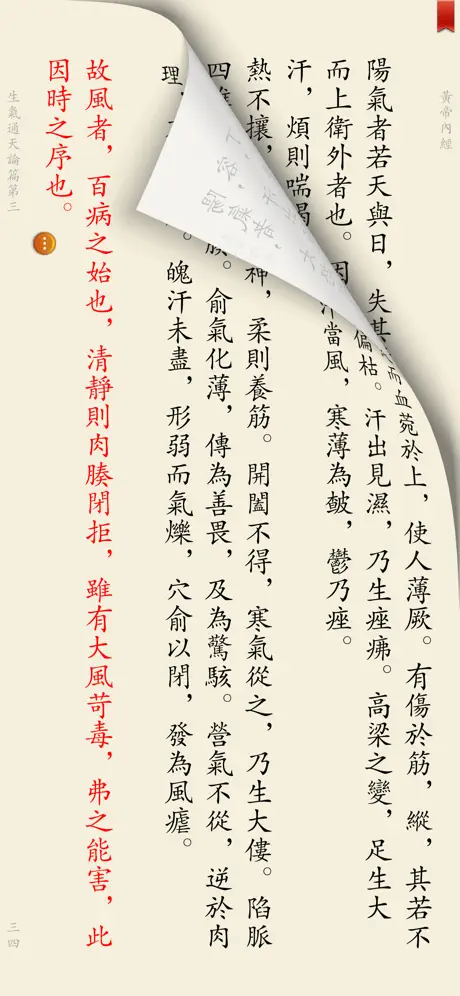 黃帝內經
陽氣者若天與日，失其
而上衛外者也。因
汗，煩則喘喝
熱不攘，
四維
而血菀於上，使人薄厥。有傷於筋，縱，其若不
偏枯。汗出見濕，乃生痤疿。高梁之變，足生大
汗當風，寒薄為皶，鬱乃痤。
神，柔則養筋。開闔不得，寒氣從之，乃生大僂。陷脈
俞氣化薄，傳為善畏，及為驚駭。營氣不從，逆於肉
理，
魄汗未盡，形弱而氣爍，穴俞以閉，發為風瘧。
故風者，百病之始也，清靜則肉腠閉拒，雖有大風苛毒，弗之能害，此
因時之序也。
生氣通天論篇第三
三四